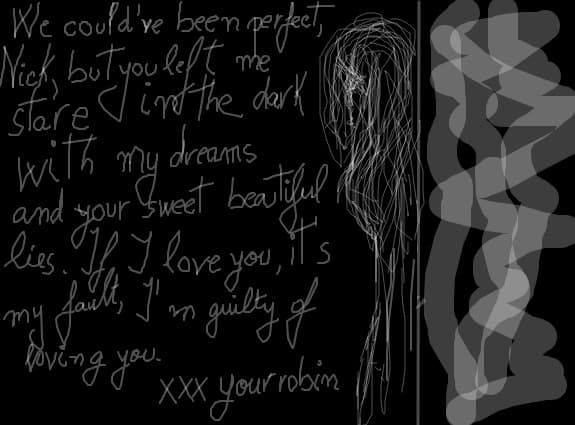 We could've been perfect,
Nick, but you left me
stare in the dark
with my dreams
and your sweet beautiful
lies. If I love you, it's
my fault, I'm guilty of
loving you.
xxx your robin